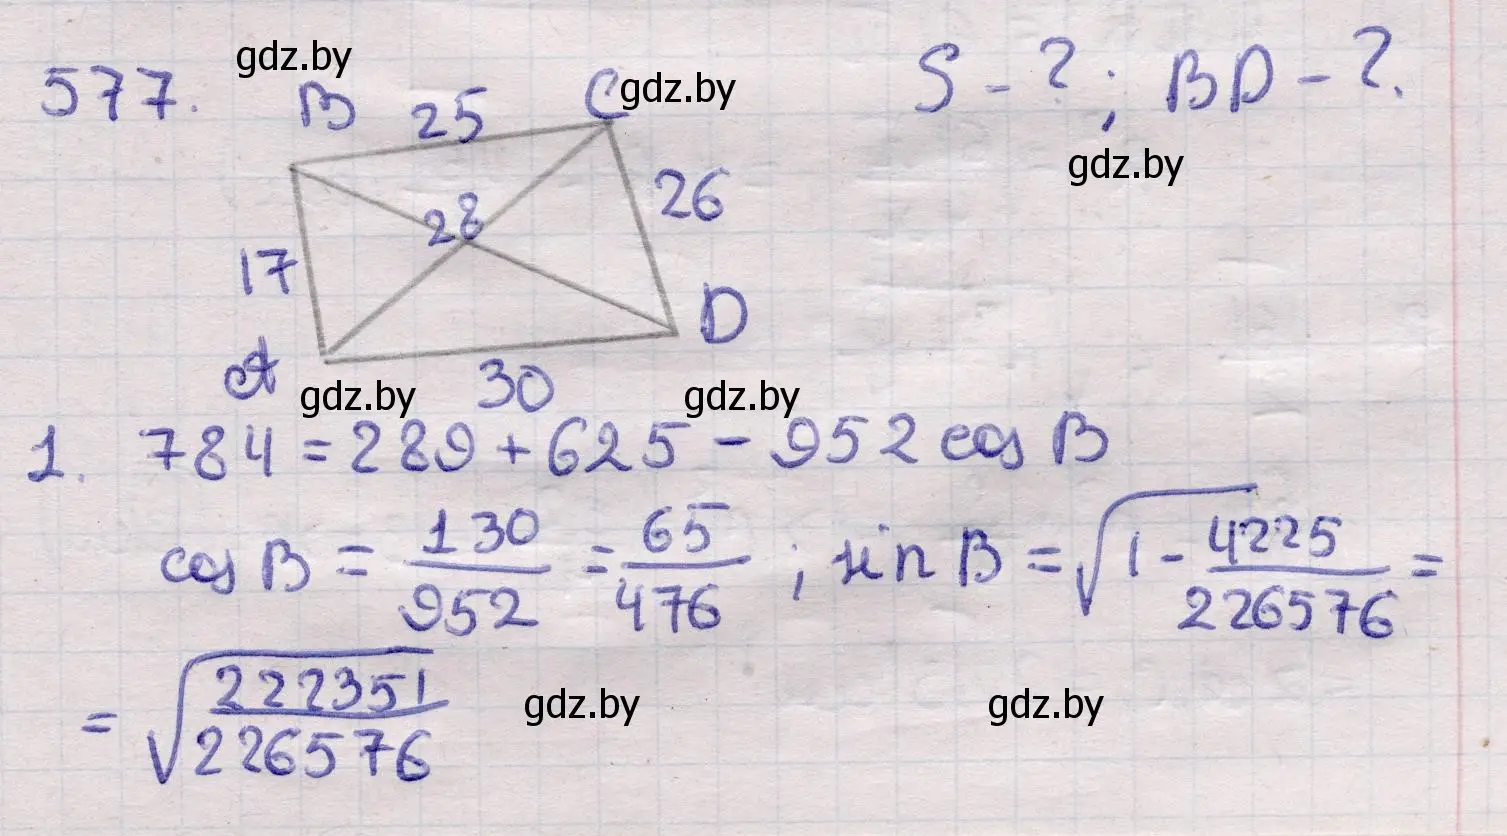 577. B 25 C S - ? ; BD - ?.
gdz.by gdz.by gdz.by
17 28 26
A 30 D
gdz.by gdz.by
1. 784 = 289 + 625 - 952 cos B
cos B = 130/952 = 65/476 ; sin B = √(1 - 4225/226576) =
= √(222351/226576)
gdz.by gdz.by